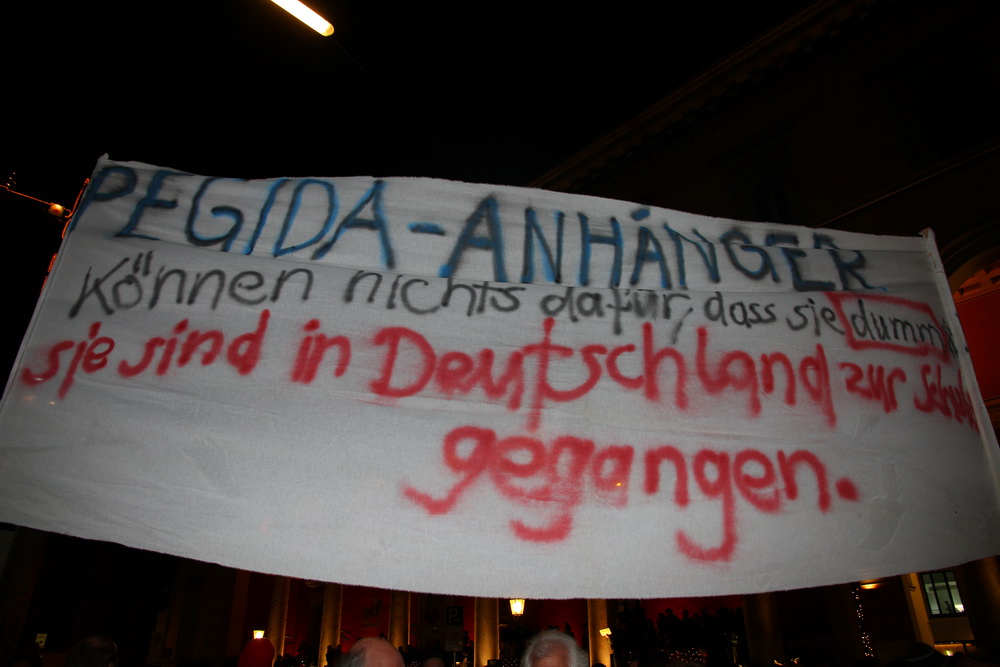 PEGIDA-ANHÄNGER
Können nichts dafür, dass sie dumm
sie sind in Deutschland zur Schule
gegangen.
P